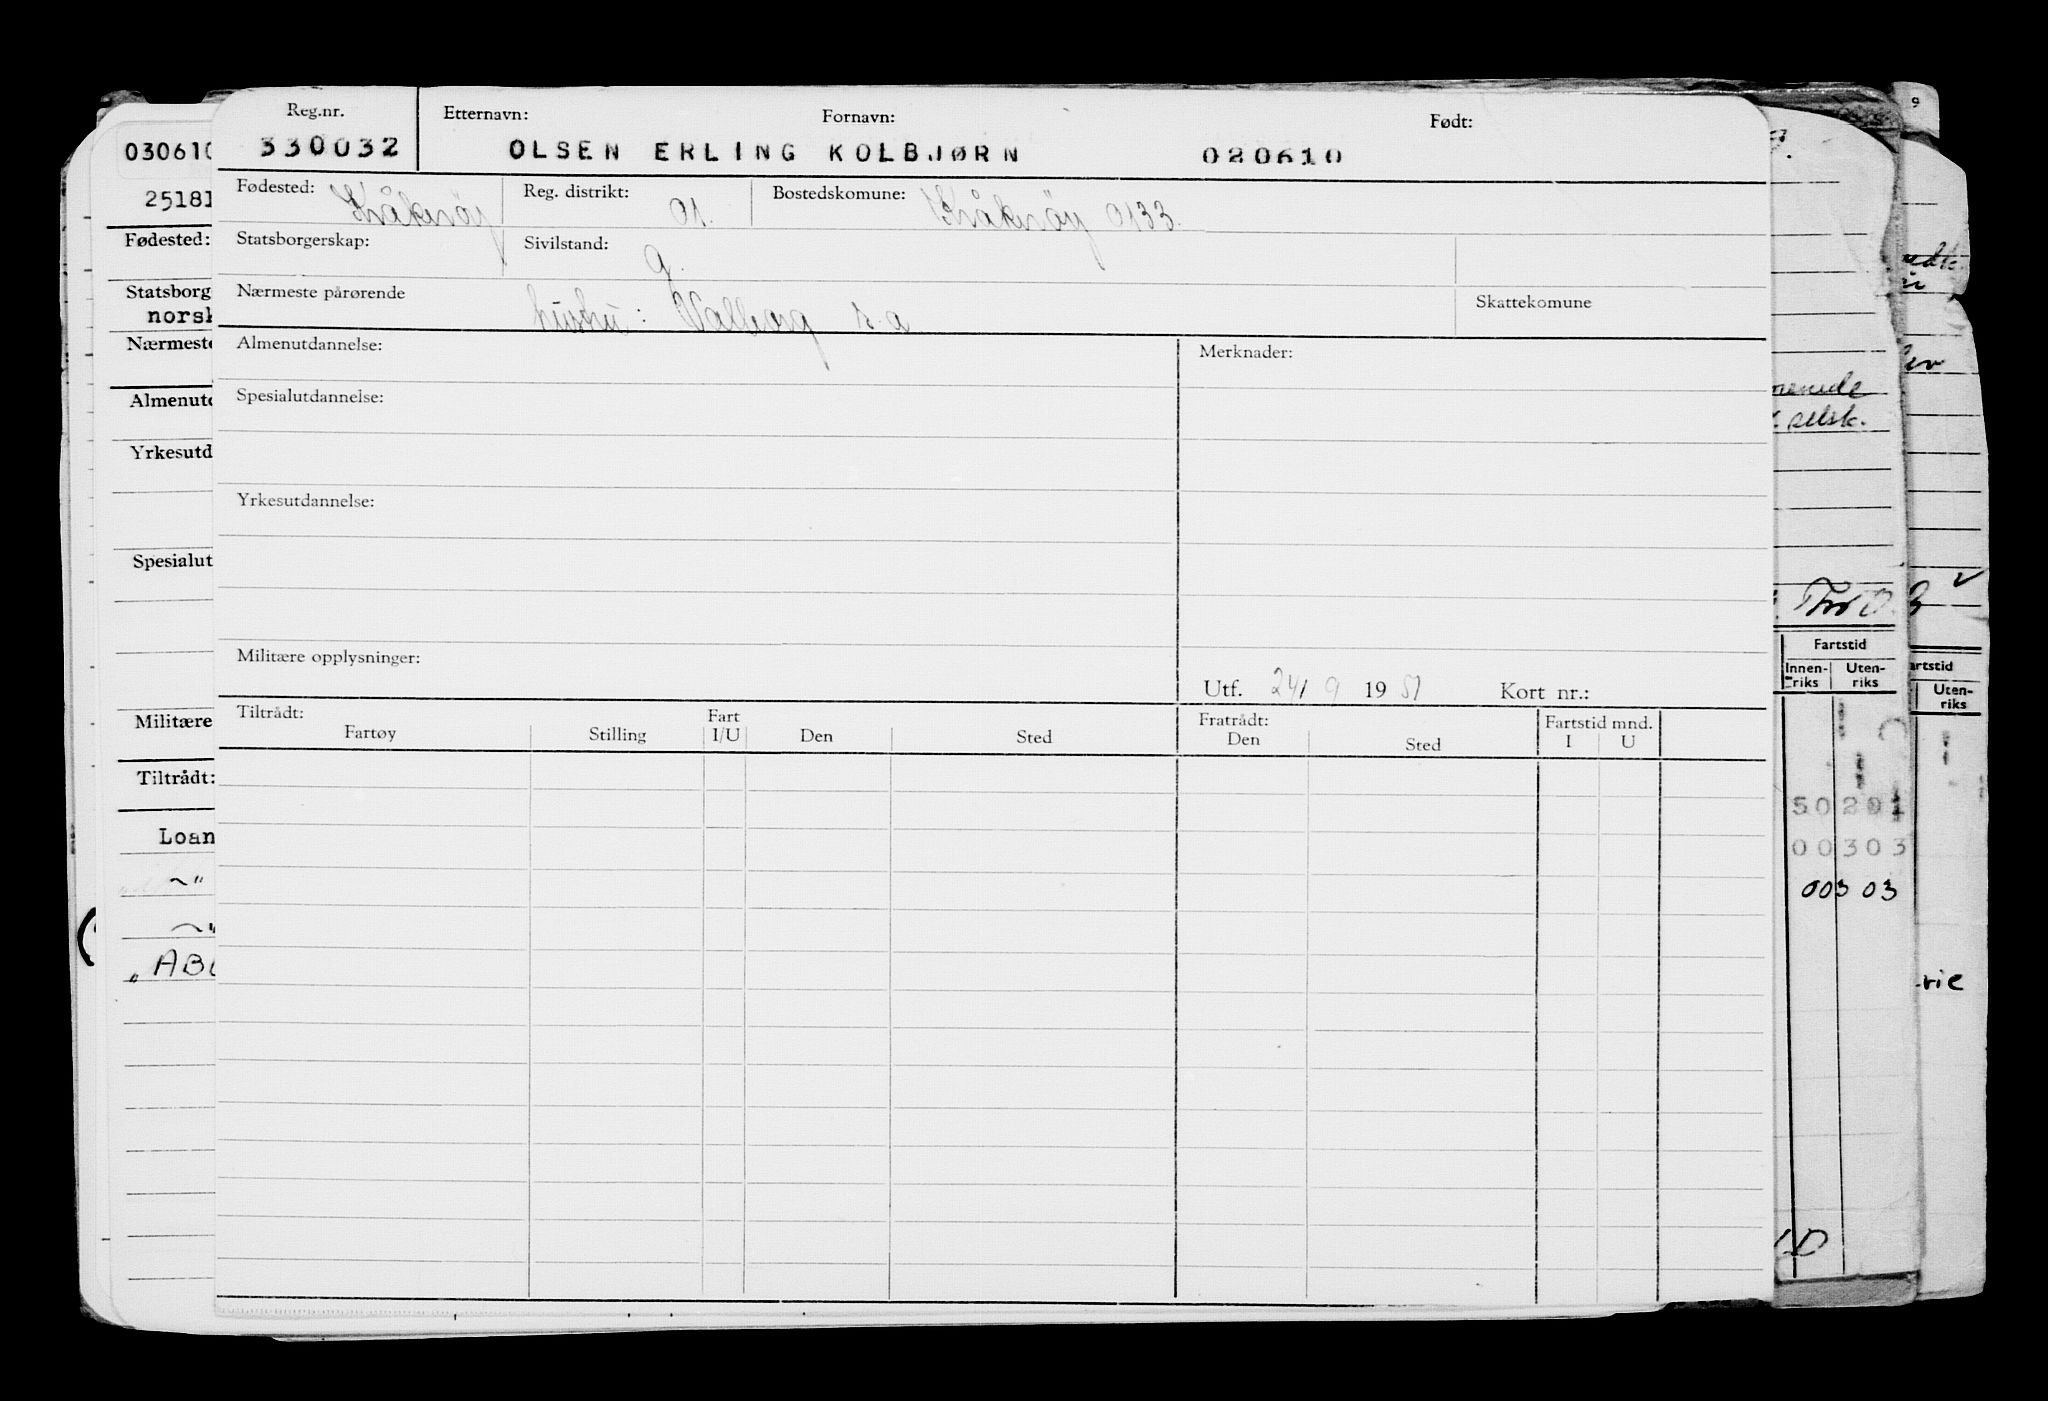 Reg.nr. Etternavn: Fornavn: Født:
330032 OLSEN ERLING KOLBJØRN 020610
Fødested: Kråkerøy Reg. distrikt: 01. Bostedskomune: Kråkerøy 0133.
Statsborgerskap: Sivilstand: g.
Nærmeste pårørende hustru: Valborg s.a Skattekomune
Almenutdannelse: Merknader:
Spesialutdannelse:
Yrkesutdannelse:
Militære opplysninger:
Utf. 24/ 9 19 51 Kort nr.:
Tiltrådt: Fart Fratrådt: Fartstid mnd.
Fartøy Stilling I/U Den Sted Den Sted I U
030610
25181
Fødested:
Statsborg
norsk
Nærmeste
Almenutd
Yrkesutd
Spesialut
Militære
Tiltrådt:
Loan
~"
~"
"AB
9
selsk.
Fartstid
Innen-riks Uten-riks
50201
00303
003 03
artstid
Uten-
riks
rie